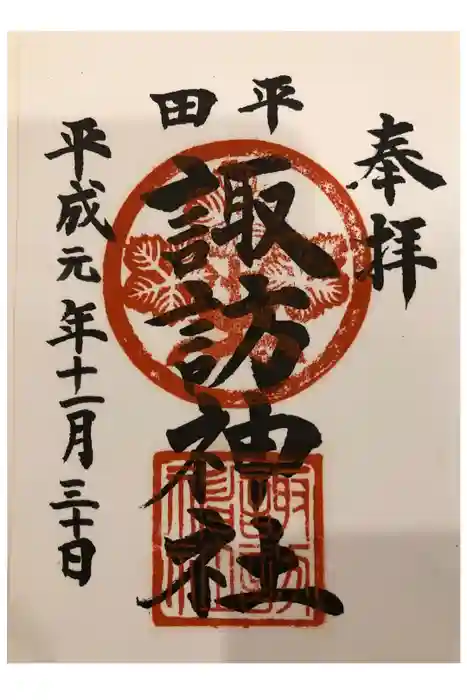 奉拝
平田
諏訪神社
平成元年十一月三十日
諏訪神社